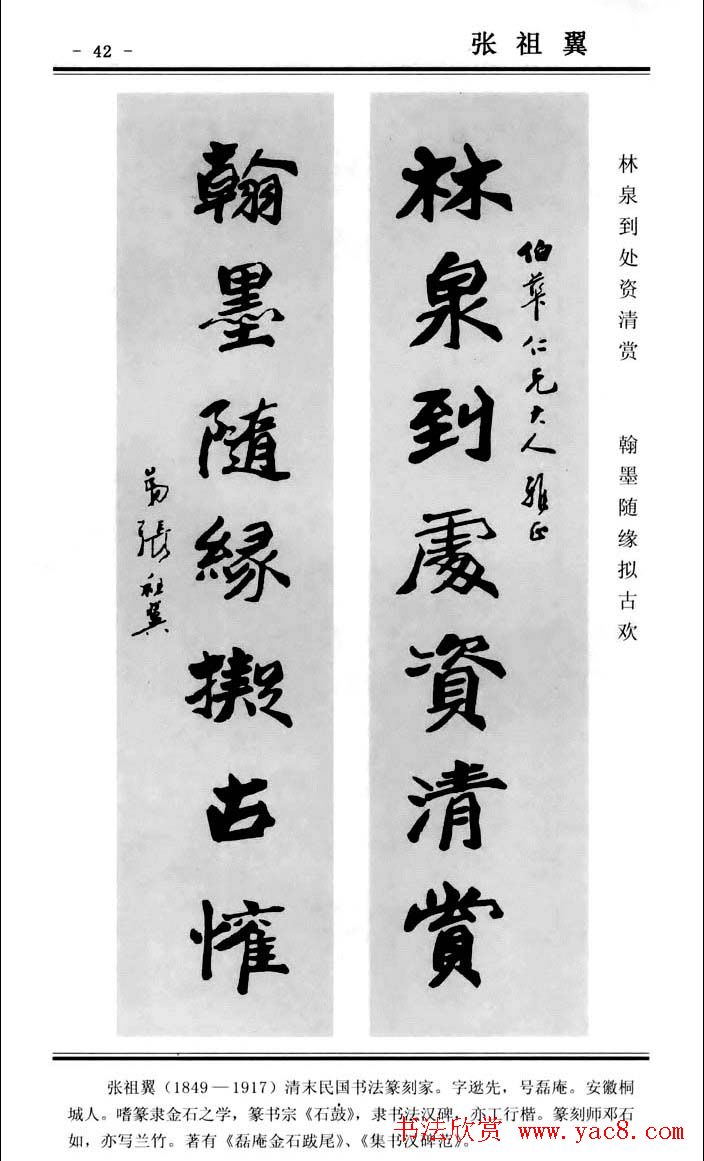 - 42 -
张祖翼
林泉到处资清赏 翰墨随缘拟古欢
林泉到處資清賞
伯華仁兄大人雅正
翰墨隨緣擬古懽
弟張祖翼
张祖翼(1849—1917)清末民国书法篆刻家。字逖先，号磊庵。安徽桐
城人。嗜篆隶金石之学，篆书宗《石鼓》，隶书法汉碑，亦工行楷。篆刻师邓石
如，亦写兰竹。著有《磊庵金石跋尾》、《集书汉碑范》。
书法欣赏 www.yac8.com